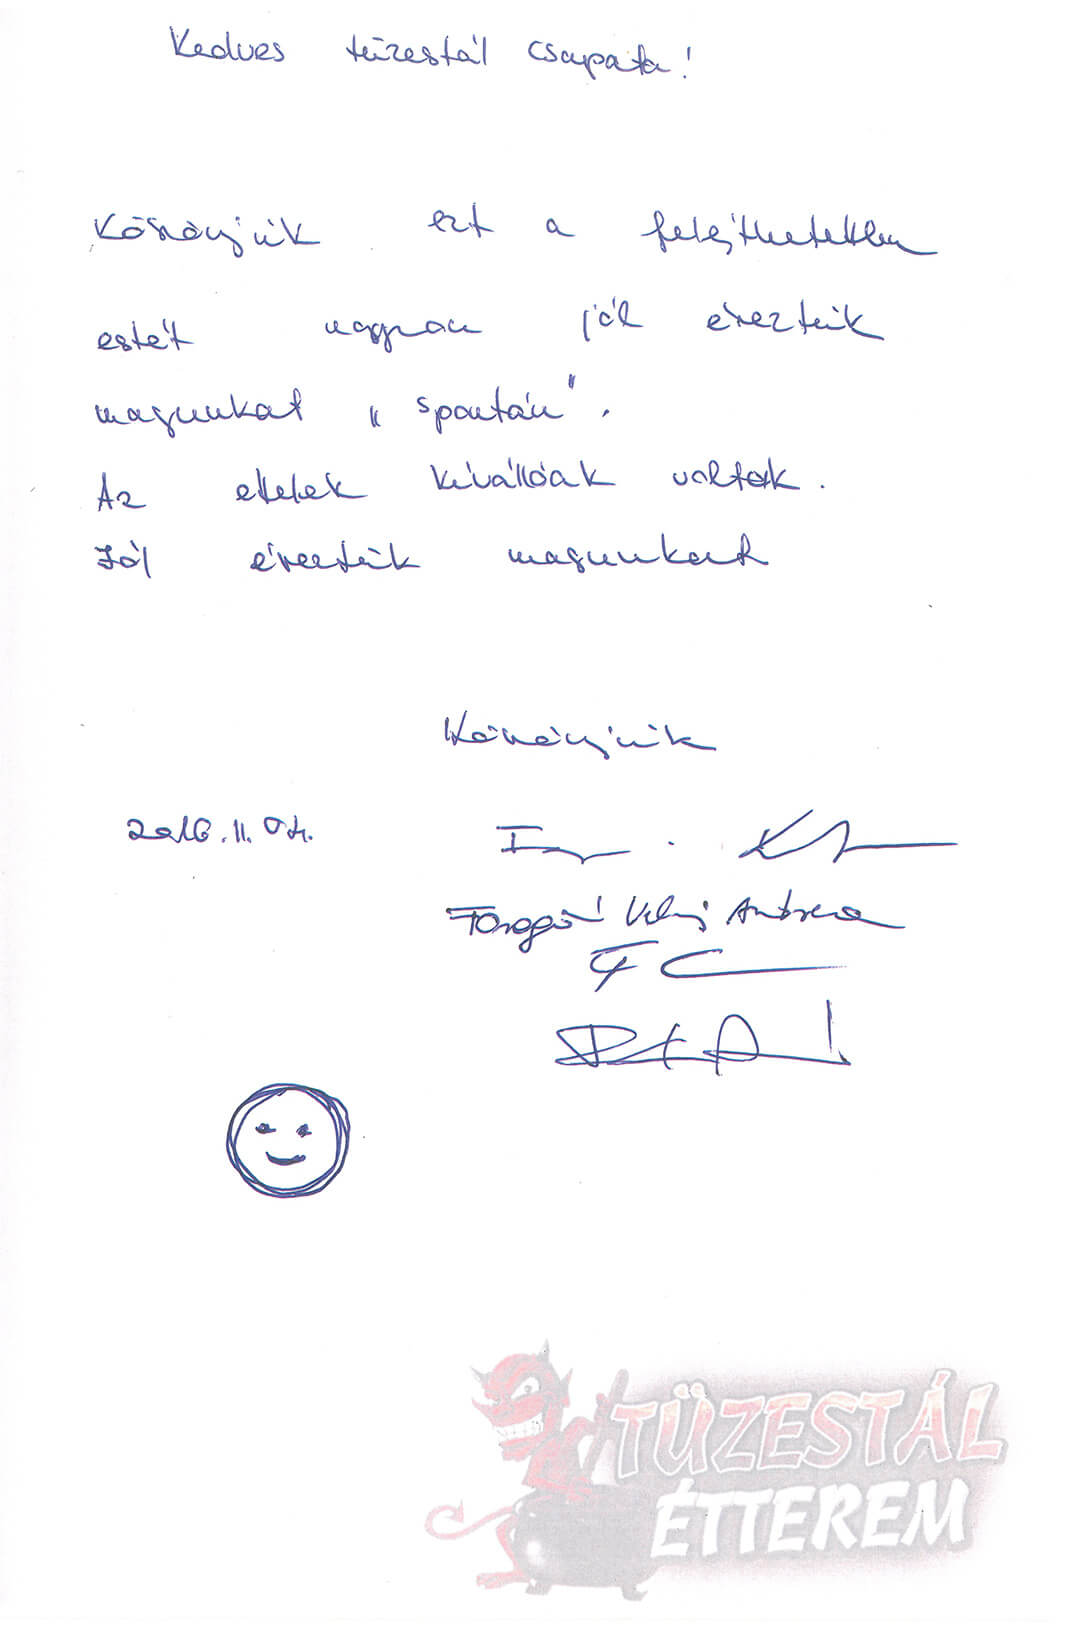 Kedves tüzestál csapata!
Köszönjük ezt a felejthetetlen
estét nagyon jól éreztük
magunkat „spontán".
Az ételek kiválóak voltak.
Jól éreztük magunkat
Köszönjük
2016.11.04.
Faragó Andrea
TÜZESTÁL
ÉTTEREM